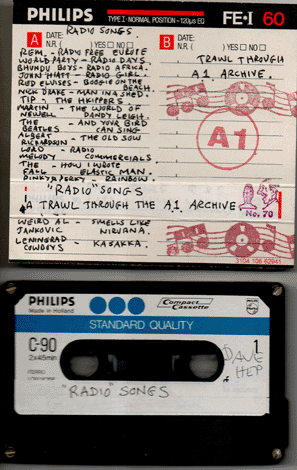 PHILIPS TYPE I · NORMAL POSITION · 120µs EQ FE·I 60
A DATE: RADIO SONGS.
N.R. ( ) YES □ NO □
R.E.M. - RADIO FREE EUROPE
WORLD PARTY - RADIO DAYS.
BHUNDU BOYS - RADIO AFRICA.
JOHN HIATT - RADIO GIRL.
ROD CLUSES - BOOGIE ON THE
BEACH.
NICK DRAKE - MAN IN A SHED
TIP - THE
MARTIN - THE WORLD OF
NEWELL DANDY LEIGH.
THE - AND YOUR BIRD
BEATLES CAN SING
ALBERT - THE OLD SOW
RICHARDSON
LORD - RADIO
MELODY COMMERCIALS
THE - HOW I WROTE
FALL ELASTIC MAN.
PINKY & PERKY - RAINBOW.
B DATE:
N.R. ( ) YES □ NO □
TRAWL THROUGH
A1 ARCHIVE.
A1
"RADIO" SONGS
A TRAWL THROUGH THE A1 ARCHIVE
No. 70
WEIRD AL - SMELLS LIKE
JANKOVIC NIRVANA.
LENINGRAD - KASAKKA.
COWBOYS
3104 106 62941
PHILIPS
Made in Holland
Compact Cassette
STANDARD QUALITY
C-90
2x45min
FERRO
1
DAVE
HEP
"RADIO" SONGS